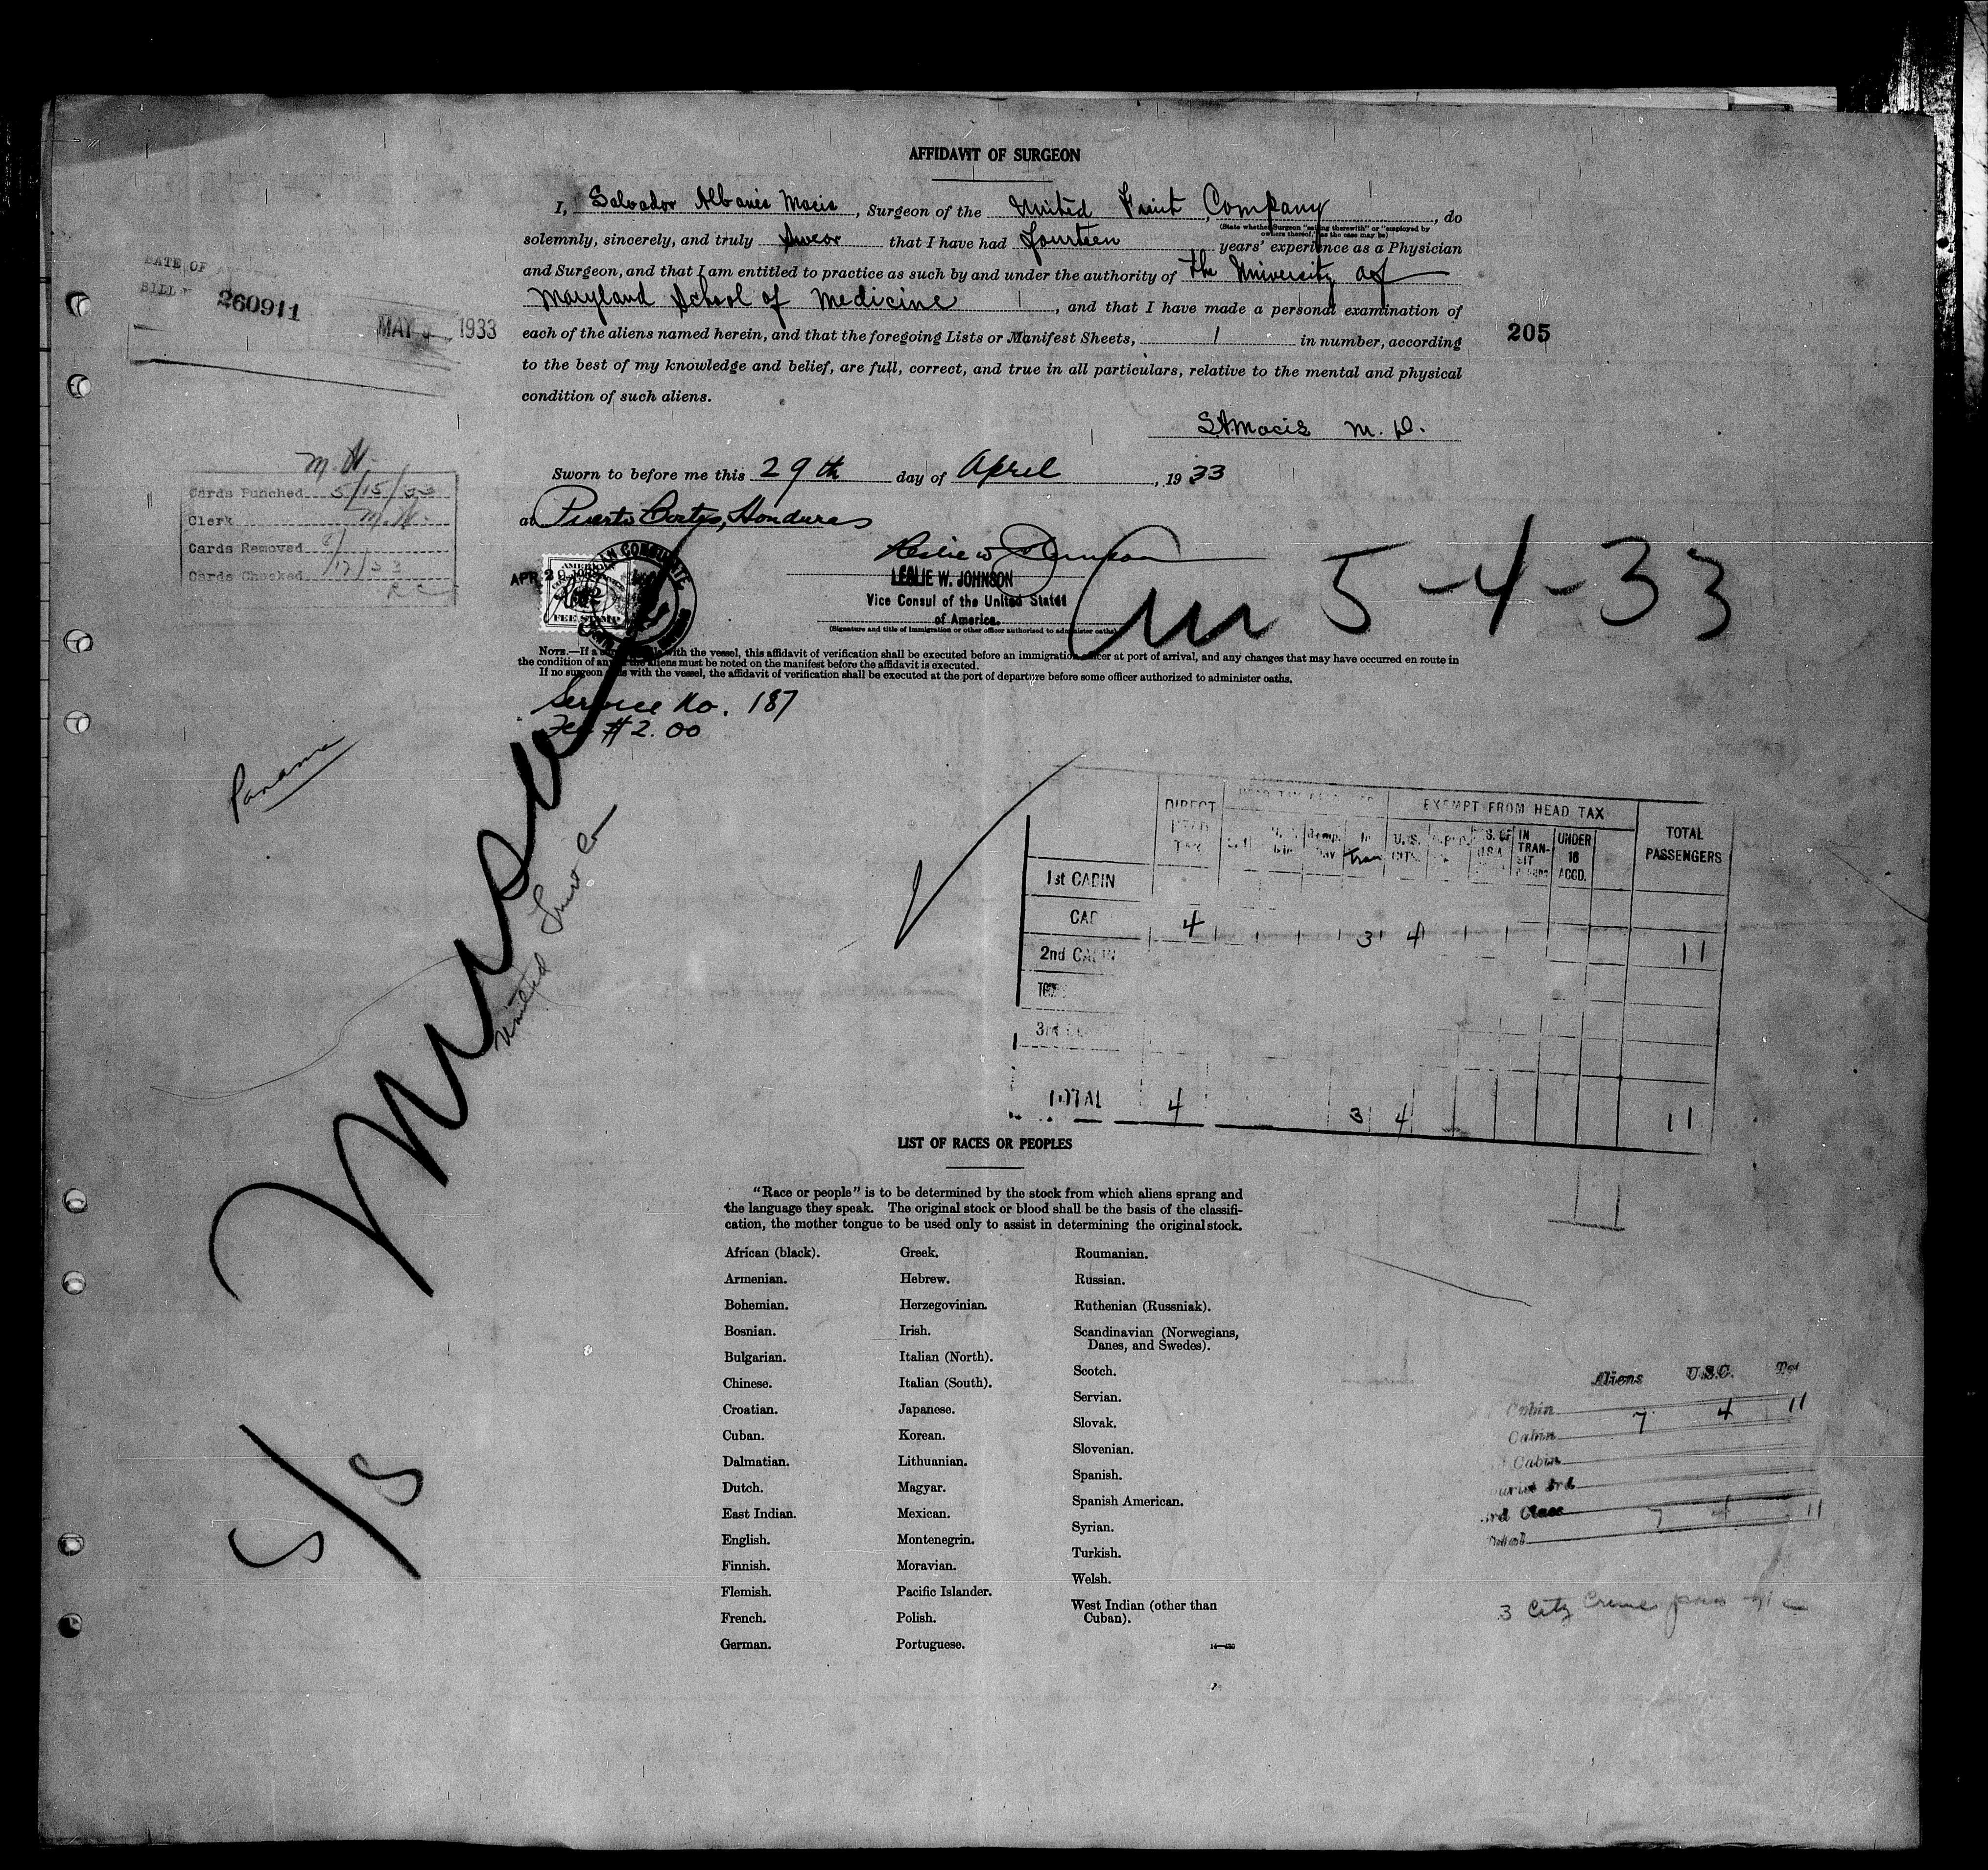 AFFIDAVIT OF SURGEON
I, Salvador Albanis Macis, Surgeon of the United Fruit Company, do
(State whether Surgeon "sailing therewith" or "employed by
owners thereof," as the case may be)
solemnly, sincerely, and truly swear that I have had fourteen years' experience as a Physician
and Surgeon, and that I am entitled to practice as such by and under the authority of the University of
Maryland School of Medicine, and that I have made a personal examination of
each of the aliens named herein, and that the foregoing Lists or Manifest Sheets, 1 in number, according
to the best of my knowledge and belief, are full, correct, and true in all particulars, relative to the mental and physical
condition of such aliens.
S.A. Macis M. D.
DATE OF
BILL
260911
MAY 1933
205
Sworn to before me this 29th day of April, 1933
at Puerto Cortes, Honduras
M.W.
Cards Punched 5/15/33
Clerk M.W.
Cards Removed
Cards Checked
Leslie W. Johnson
LESLIE W. JOHNSON
Vice Consul of the United States
of America.
(Signature and title of immigration or other officer authorized to administer oaths)
AMERICAN CONSULATE
APR 29 1933
FEE STAMP
5-4-33
NOTE.—If a surgeon sails with the vessel, this affidavit of verification shall be executed before an immigration officer at port of arrival, and any changes that may have occurred en route in
the condition of any of the aliens must be noted on the manifest before the affidavit is executed.
If no surgeon sails with the vessel, the affidavit of verification shall be executed at the port of departure before some officer authorized to administer oaths.
Service No. 187
Fee $2.00
Panama
United Fruit Co
DIRECT HEAD TAX
EXEMPT FROM HEAD TAX
TOTAL PASSENGERS
In Tran
U.S. CITS.
IN TRANSIT
UNDER 16 ACCD.
1st CABIN
CAB 4 3 4 11
2nd CABIN
3rd
TOTAL 4 3 4 11
LIST OF RACES OR PEOPLES
"Race or people" is to be determined by the stock from which aliens sprang and
the language they speak. The original stock or blood shall be the basis of the classifi-
cation, the mother tongue to be used only to assist in determining the original stock.
African (black).
Armenian.
Bohemian.
Bosnian.
Bulgarian.
Chinese.
Croatian.
Cuban.
Dalmatian.
Dutch.
East Indian.
English.
Finnish.
Flemish.
French.
German.
Greek.
Hebrew.
Herzegovinian.
Irish.
Italian (North).
Italian (South).
Japanese.
Korean.
Lithuanian.
Magyar.
Mexican.
Montenegrin.
Moravian.
Pacific Islander.
Polish.
Portuguese.
Roumanian.
Russian.
Ruthenian (Russniak).
Scandinavian (Norwegians,
Danes, and Swedes).
Scotch.
Servian.
Slovak.
Slovenian.
Spanish.
Spanish American.
Syrian.
Turkish.
Welsh.
West Indian (other than
Cuban).
5/8
Aliens U.S.C. Tot
Cabin 7 4 11
Cabin
Cabin
Tourist 3rd
3rd Class 7 4 11
Total
3 City